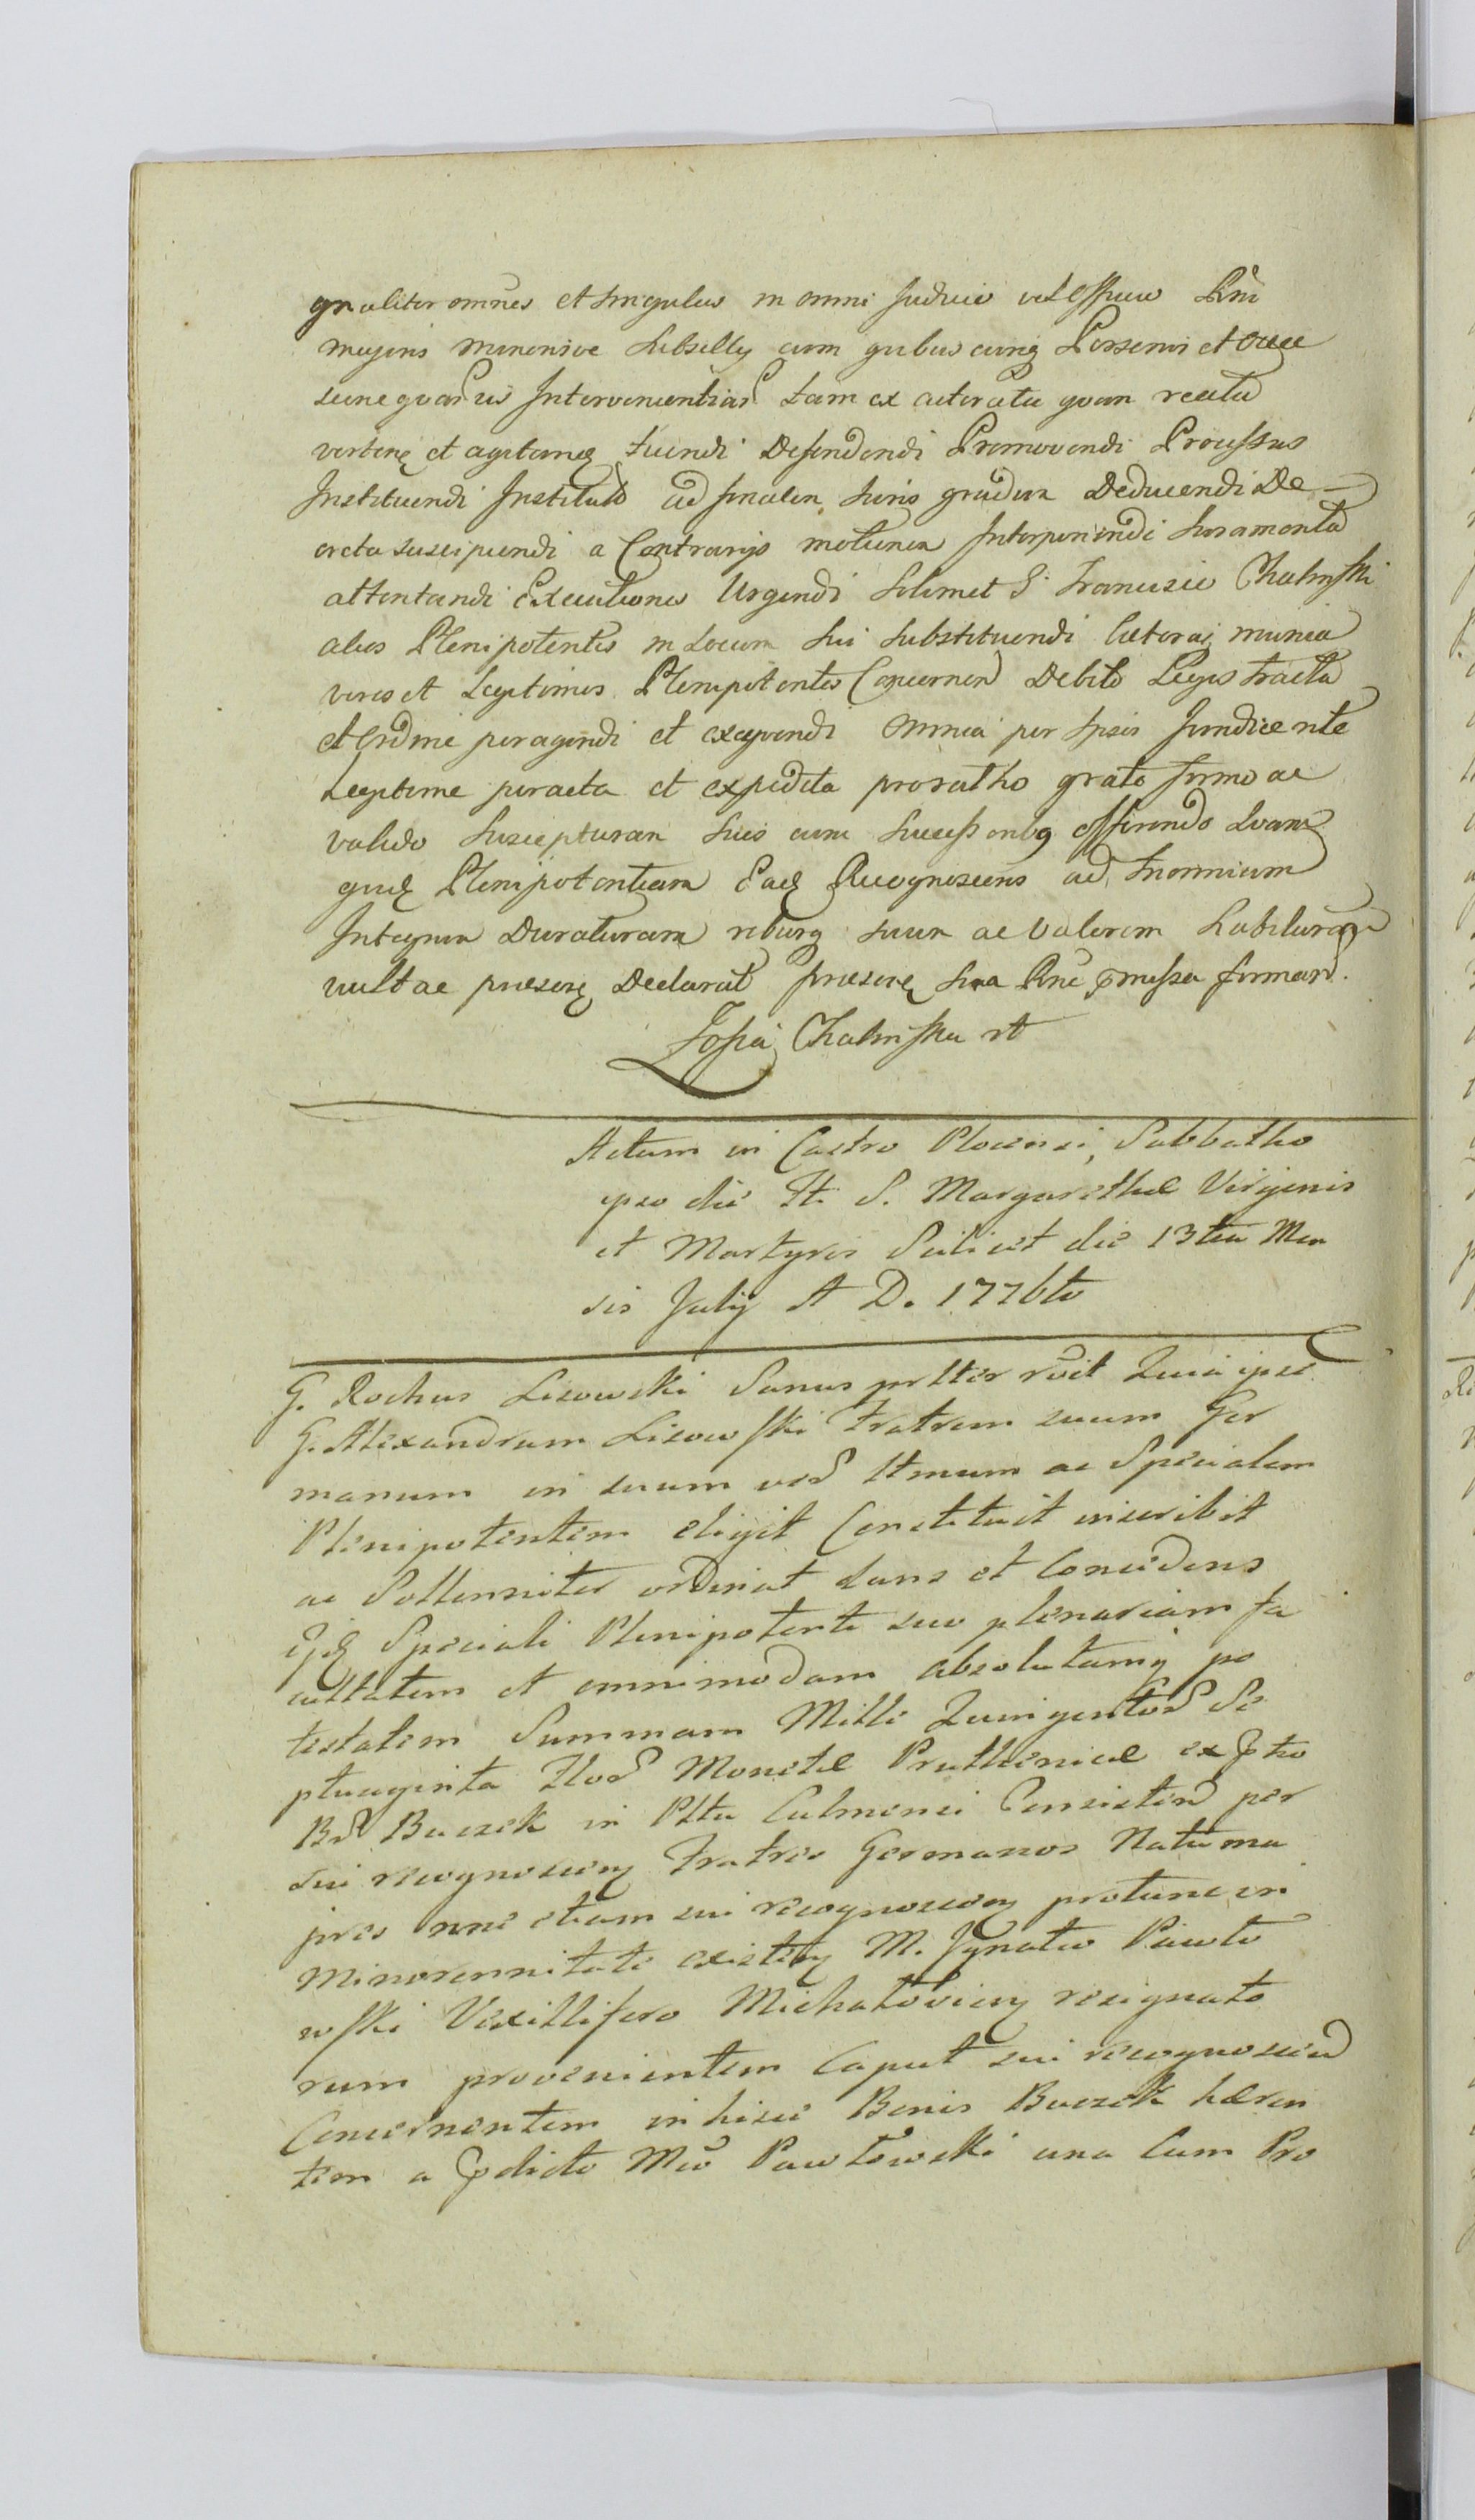 gnaliter omnes et singulas in omni Judicio vel officio Rni
majoris minorisve Subselly cum quibus cunq Personis et occa
sione quarvis Intervenientiar tam ex actoratu quam reatu
verten et agitan tuendi Defendendi Promovendi Processus
Instituendi Institutos ad finalem Juris gradum Deducendi De
creta suscipiendi a Contrarijs motionem Interponendi Juramenta
attentandi Executiones Urgendi Solimet G. Francisco Chalinski
alios Plenipotentes in Locum sui Substituendi Caeteraq munia
veros et Legitimos Plenipotentes Concernen Debito Legis tractu
et Ordine peragendi et exequendi Omnia per Ipsos Jurridice rite
Legitime peracta et expedita pro ratho grato firmo ac
valido Suscepturam suis cum Successoribq offerendo Suam
que Plenipotentiam Eadem Recognoscens ad Triennium
Integrum Duraturam roburq suum ac Valorem habituram
vult ac praesen Declarat praesen sua Rne pmissa firman.
Zofia Chalinska rt
Actum in Castro Plocensi, Sabbatho
ipso die Ft. S. Margarethae Virginis
et Martyris Scilicet die 13tia Men
sis July A D. 1776to
G. Rochus Lisowski Sanus prltter rcit Quia ipse
G. Alexandrum Lisowski Fratrem suum Ger
manum in suum ver ltmum ac Specialem
Plenipotentem eligit Constituit inscribit
ac Sollenniter ordinat dans et Concedens
Speciali Plenipotenti suo plenariam fa
cultatem et omnimodam absolutamq po
testatem Summam Mille Quingentor Se
ptuaginta Flor Monetae Pruthenicae ex
Br Buczek in Pltu Culmensi Consisten per
sui recognoscen Fratres Germanos Natu ma
jores nnc etiam sui recognoscen protunc in
minorennitate existen M. Ignatio Pawło
wski Vexillifero Michałovien resignato
rum provenientem Caput sui recognoscen
Concernentem in hisce Bonis Buczek haeren
tem a pdicto Mco Pawłowski una Cum Pro